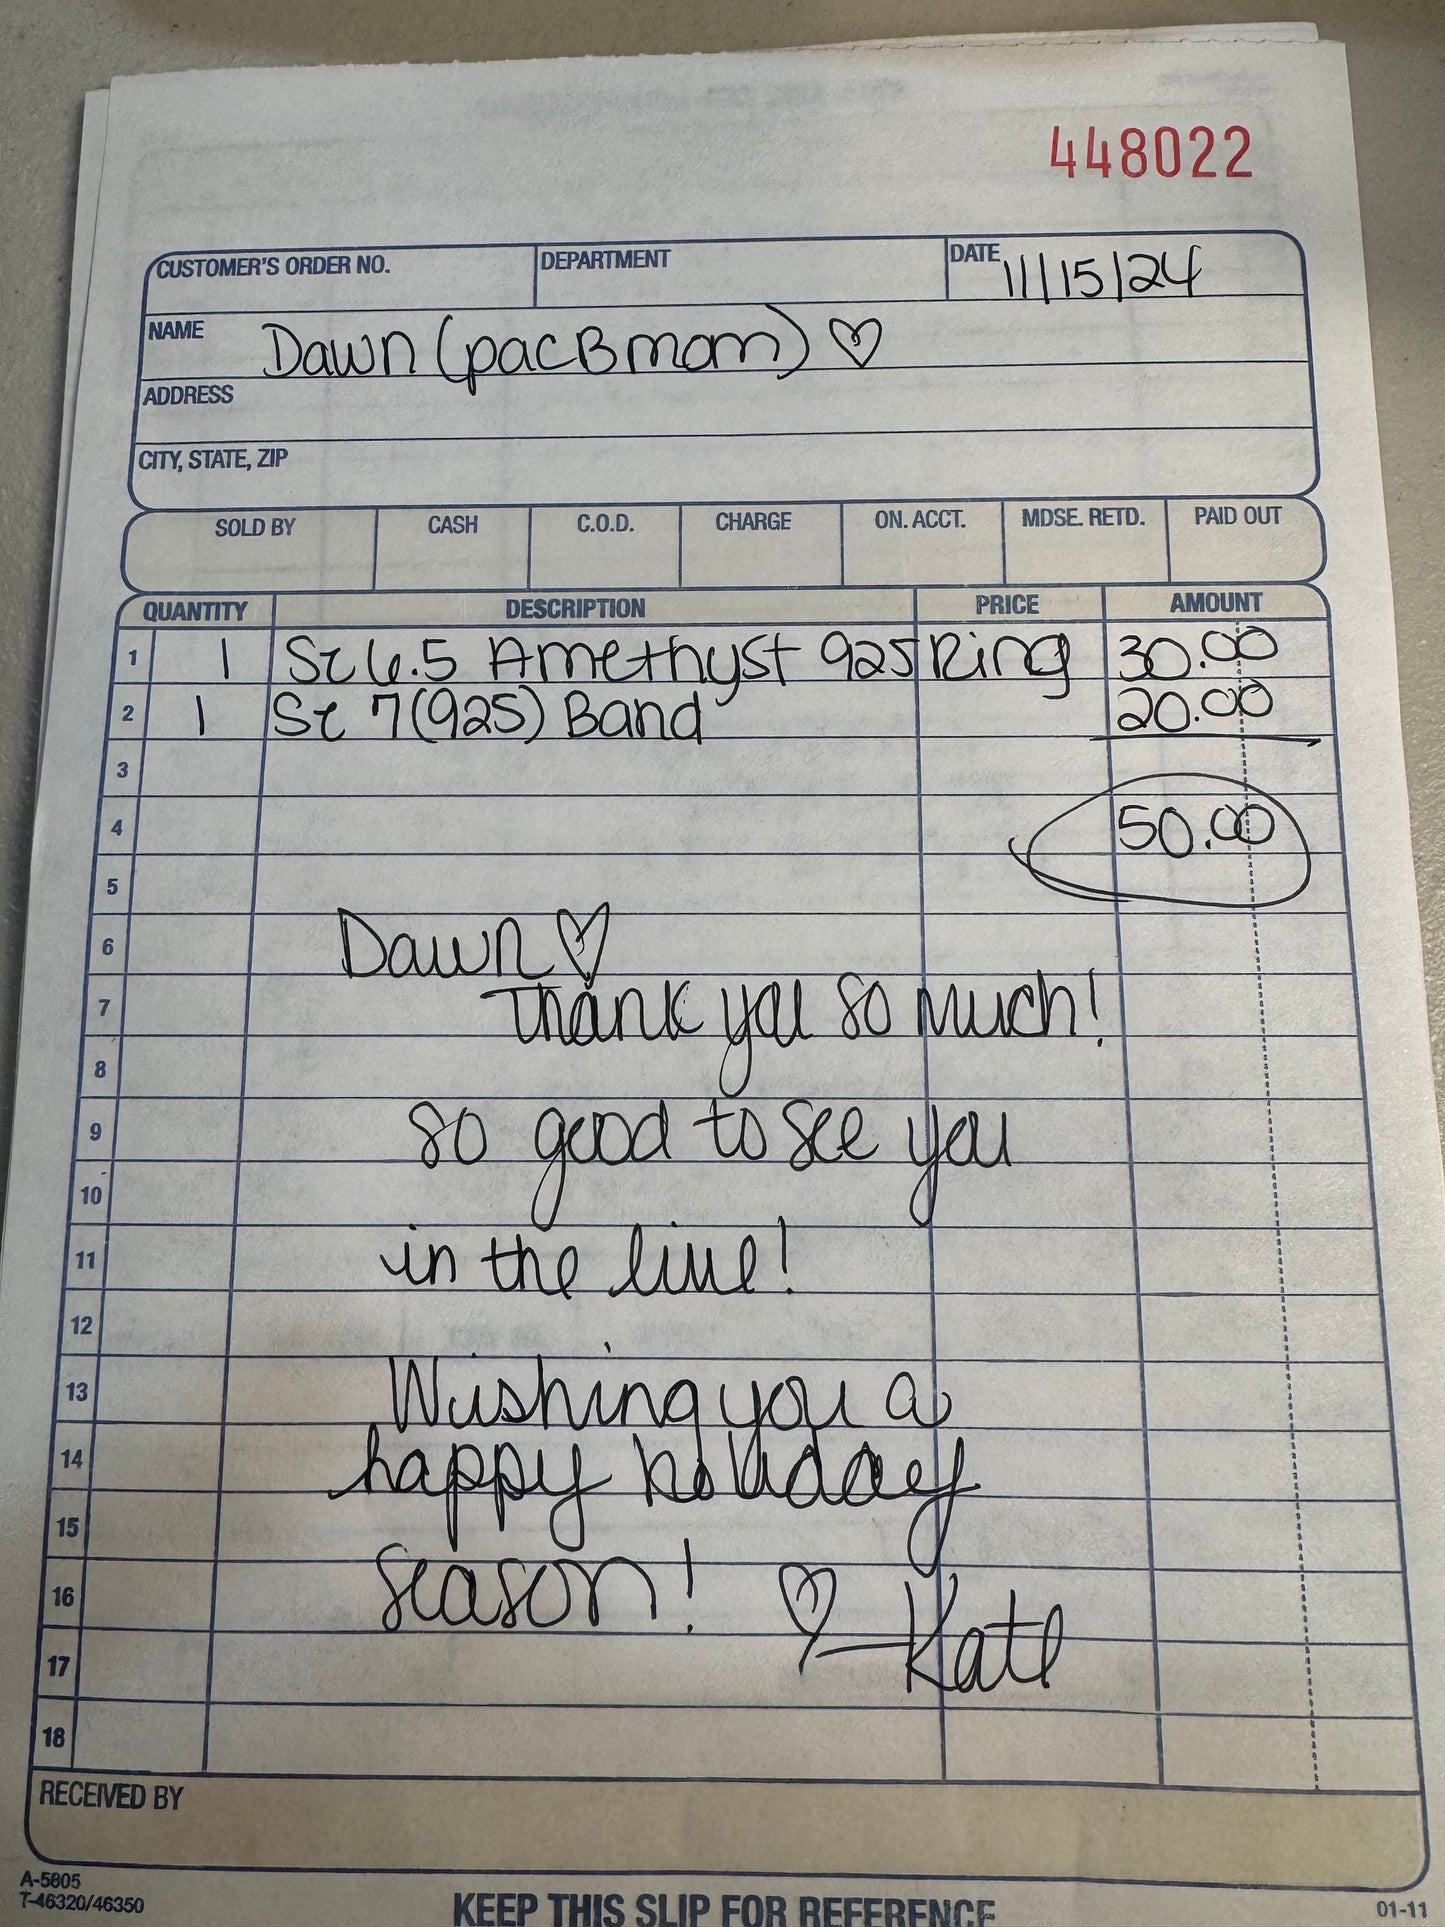 448022
CUSTOMER'S ORDER NO. DEPARTMENT DATE 11/15/24
NAME Dawn (pacBmom) ♡
ADDRESS
CITY, STATE, ZIP
SOLD BY CASH C.O.D. CHARGE ON. ACCT. MDSE. RETD. PAID OUT
QUANTITY DESCRIPTION PRICE AMOUNT
1 1 Sz 6.5 Amethyst 925 Ring 30.00
2 1 Sz 7 (925) Band 20.00
3
4 50.00
5
6 Dawn ♡
7 Thank you so much!
8
9 so good to see you
10
11 in the live!
12
13 Wishing you a
14 happy holiday
15
16 season! ♡ -Kate
17
18
RECEIVED BY
A-5805
T-46320/46350
KEEP THIS SLIP FOR REFERENCE
01-11